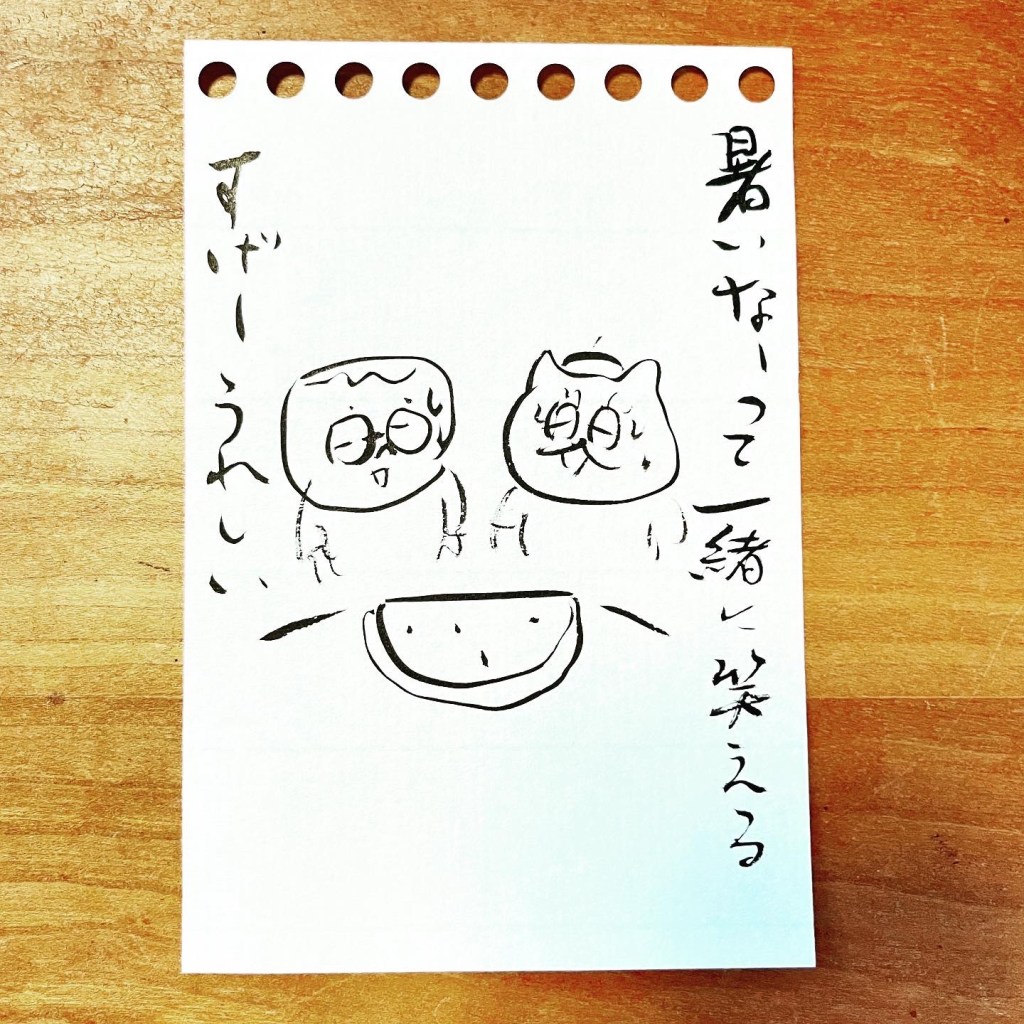 暑いなーって一緒に笑える
すげーうれしい